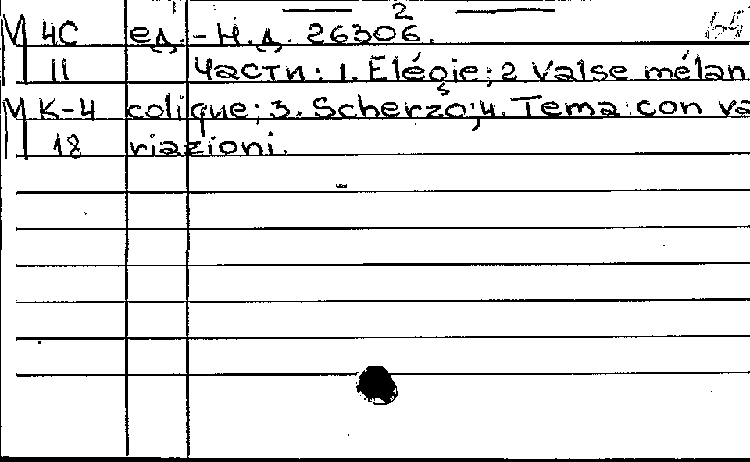 2
М 4С ед. - Н.д. 26306. 64
11 Части: 1. Elégie; 2 Valse mélan
М К-4 colique; 3. Scherzo; 4. Tema con va
18 riazioni.